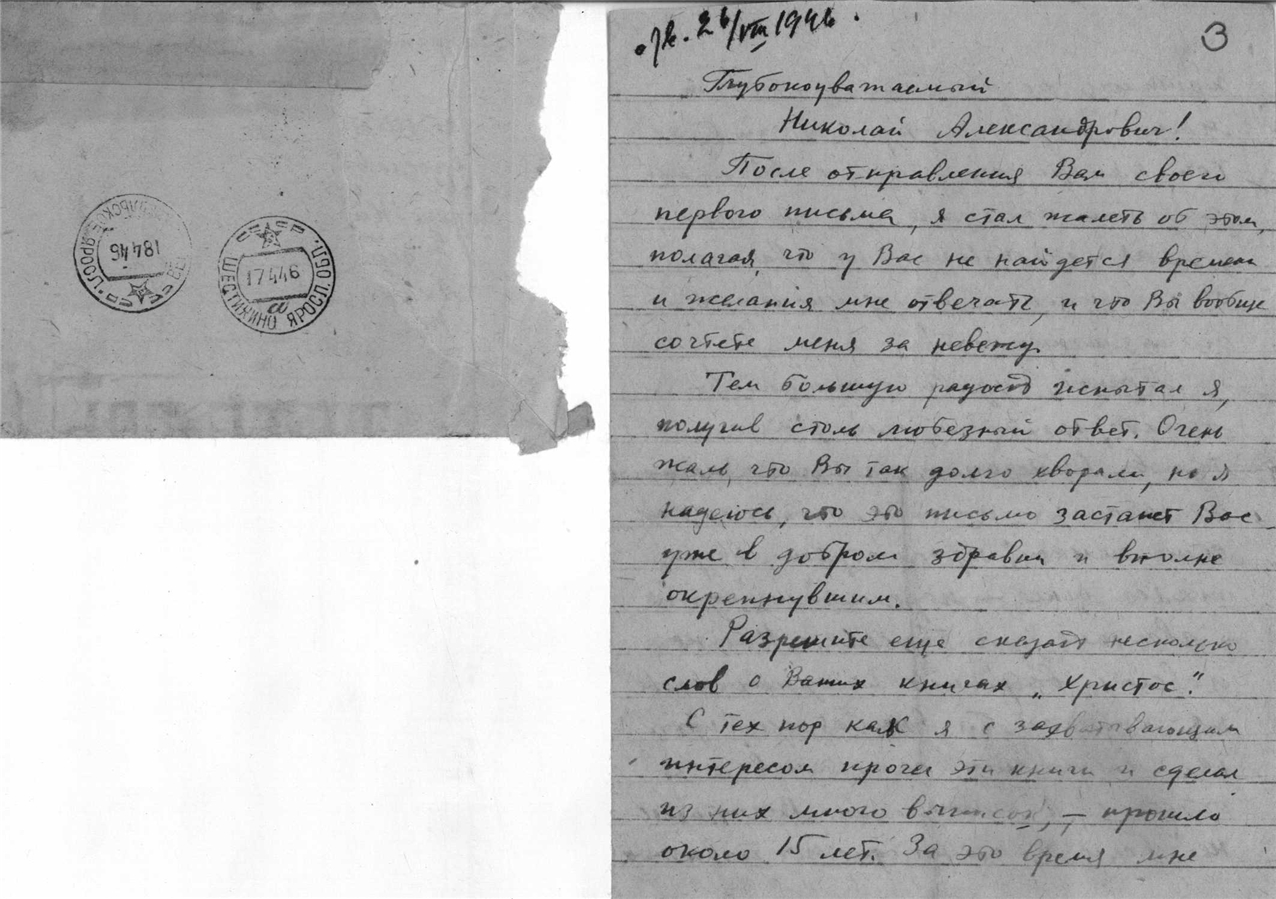 18446
ЯРОСЛ.
17446
ШЕСТИХИНО ЯРОСЛ. ОБЛ.
а
26/VIII 1946.
3
Глубокоуважаемый
Николай Александрович!
После отправления Вам своего
первого письма, я стал жалеть об этом,
полагая, что у Вас не найдется времени
и желания мне отвечать, и что Вы вообще
сочтете меня за невежу.
Тем большую радость испытал я,
получив столь любезный ответ. Очень
жаль, что Вы так долго хворали, но я
надеюсь, что это письмо застанет Вас
уже в добром здравии и вполне
окрепнувшим.
Разрешите еще сказать несколько
слов о Ваших книгах „Христос".
С тех пор как я с захватывающим
интересом прочел эти книги и сделал
из них много выписок, — прошло
около 15 лет. За это время мне